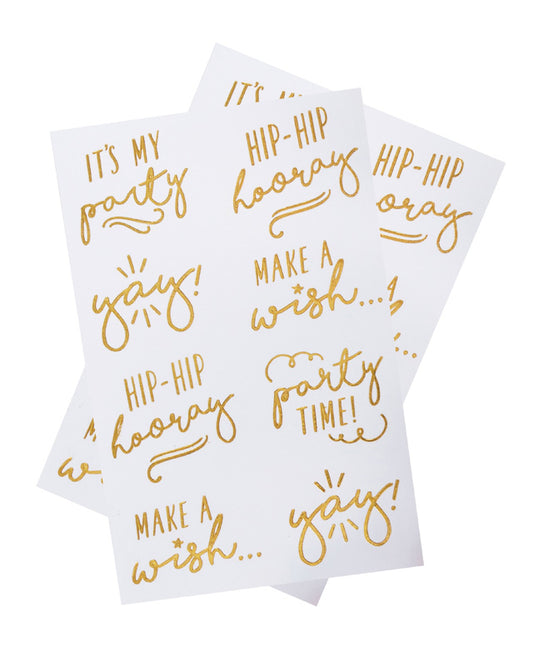 IT'S MY
party
HIP-HIP
hooray
yay!
MAKE A
wish...
HIP-HIP
hooray
party
TIME!
MAKE A
wish...
yay!
IT'S MY
HIP-HIP
hooray